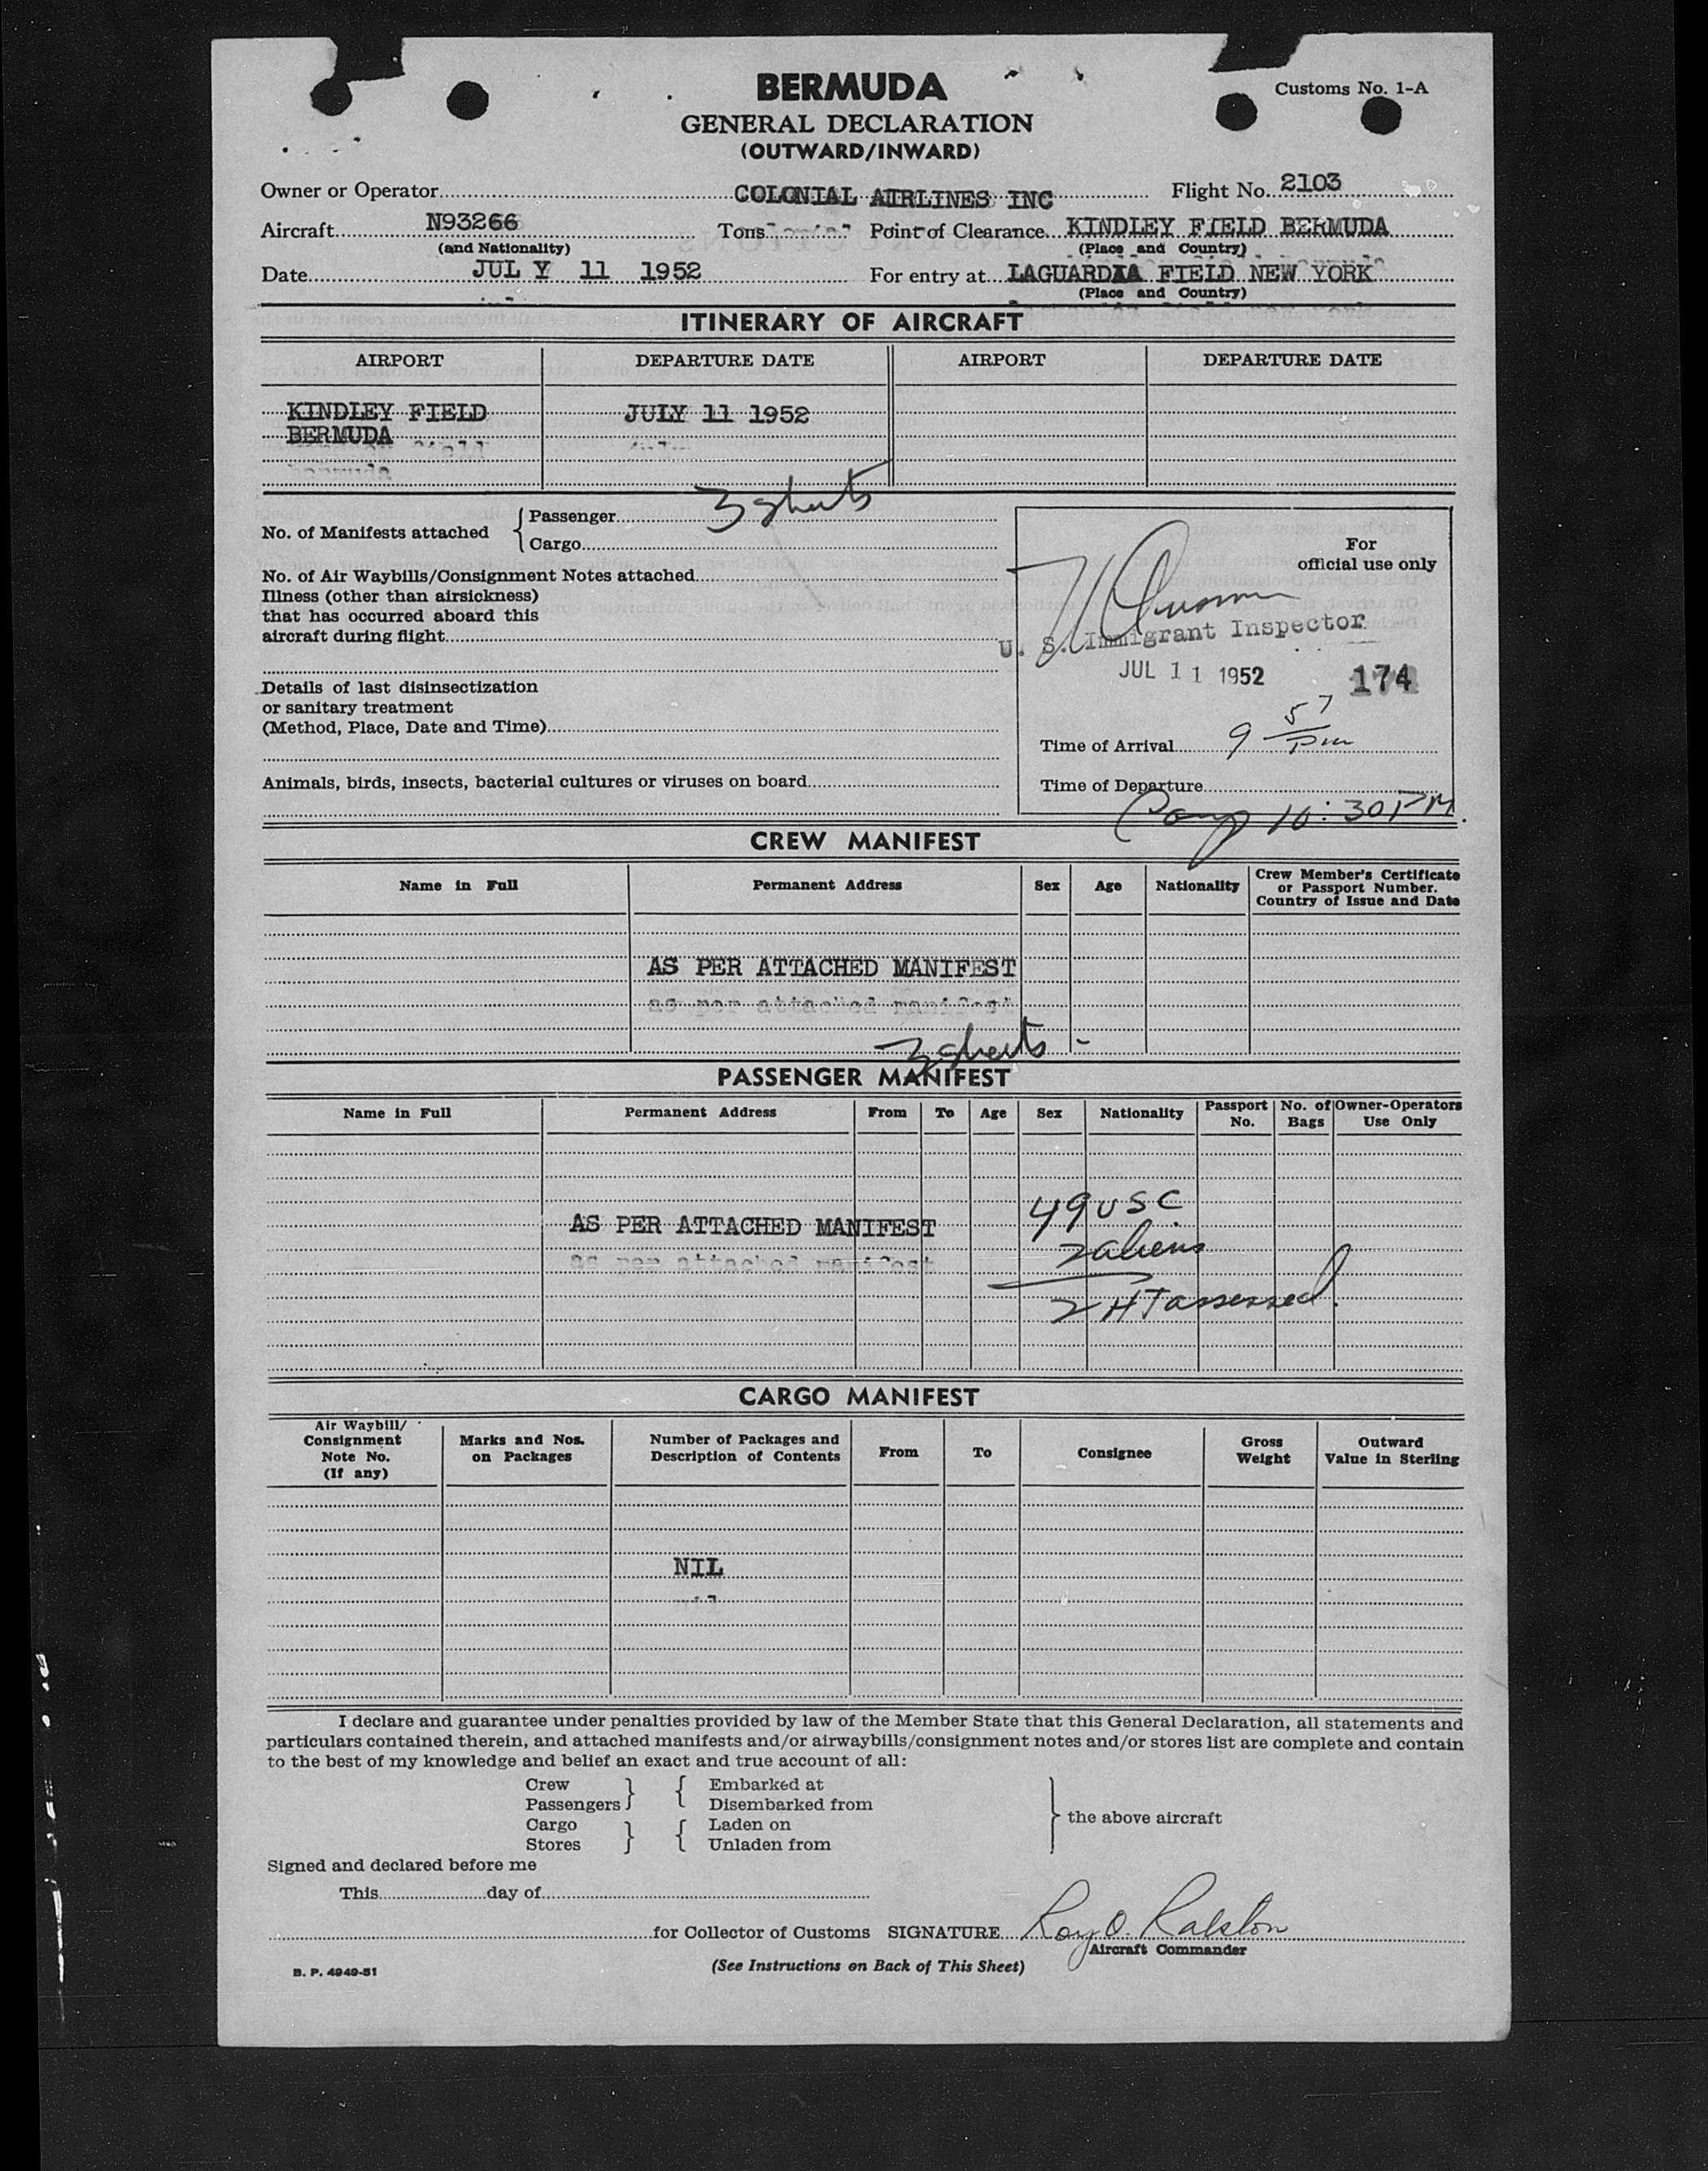 BERMUDA
Customs No. 1-A
GENERAL DECLARATION
(OUTWARD/INWARD)
Owner or Operator COLONIAL AIRLINES INC Flight No. 2103
Aircraft N93266 Tons Point of Clearance KINDLEY FIELD BERMUDA
(and Nationality) (Place and Country)
Date JULY 11 1952 For entry at LAGUARDIA FIELD NEW YORK
(Place and Country)
ITINERARY OF AIRCRAFT
AIRPORT DEPARTURE DATE AIRPORT DEPARTURE DATE
KINDLEY FIELD JULY 11 1952
BERMUDA
No. of Manifests attached Passenger 3 sheets
Cargo
For
official use only
No. of Air Waybills/Consignment Notes attached
Illness (other than airsickness)
that has occurred aboard this
aircraft during flight
U. S. Immigrant Inspector
JUL 11 1952 174
Details of last disinsectization
or sanitary treatment
(Method, Place, Date and Time)
Time of Arrival 9 57 PM
Animals, birds, insects, bacterial cultures or viruses on board
Time of Departure
Comp 10:30 PM.
CREW MANIFEST
Name in Full Permanent Address Sex Age Nationality Crew Member's Certificate
or Passport Number.
Country of Issue and Date
AS PER ATTACHED MANIFEST
as per attached manifest
3 sheets -
PASSENGER MANIFEST
Name in Full Permanent Address From To Age Sex Nationality Passport No. No. of Bags Owner-Operators Use Only
49 USC
AS PER ATTACHED MANIFEST
2 aliens
as per attached manifest
2 HT assessed.
CARGO MANIFEST
Air Waybill/
Consignment
Note No.
(If any)
Marks and Nos.
on Packages
Number of Packages and
Description of Contents
From To Consignee
Gross
Weight
Outward
Value in Sterling
NIL
nil
I declare and guarantee under penalties provided by law of the Member State that this General Declaration, all statements and
particulars contained therein, and attached manifests and/or airwaybills/consignment notes and/or stores list are complete and contain
to the best of my knowledge and belief an exact and true account of all:
Crew Embarked at
Passengers Disembarked from
Cargo Laden on the above aircraft
Stores Unladen from
Signed and declared before me
This day of
for Collector of Customs SIGNATURE Roy O. Ralston
Aircraft Commander
B. P. 4949-51
(See Instructions on Back of This Sheet)